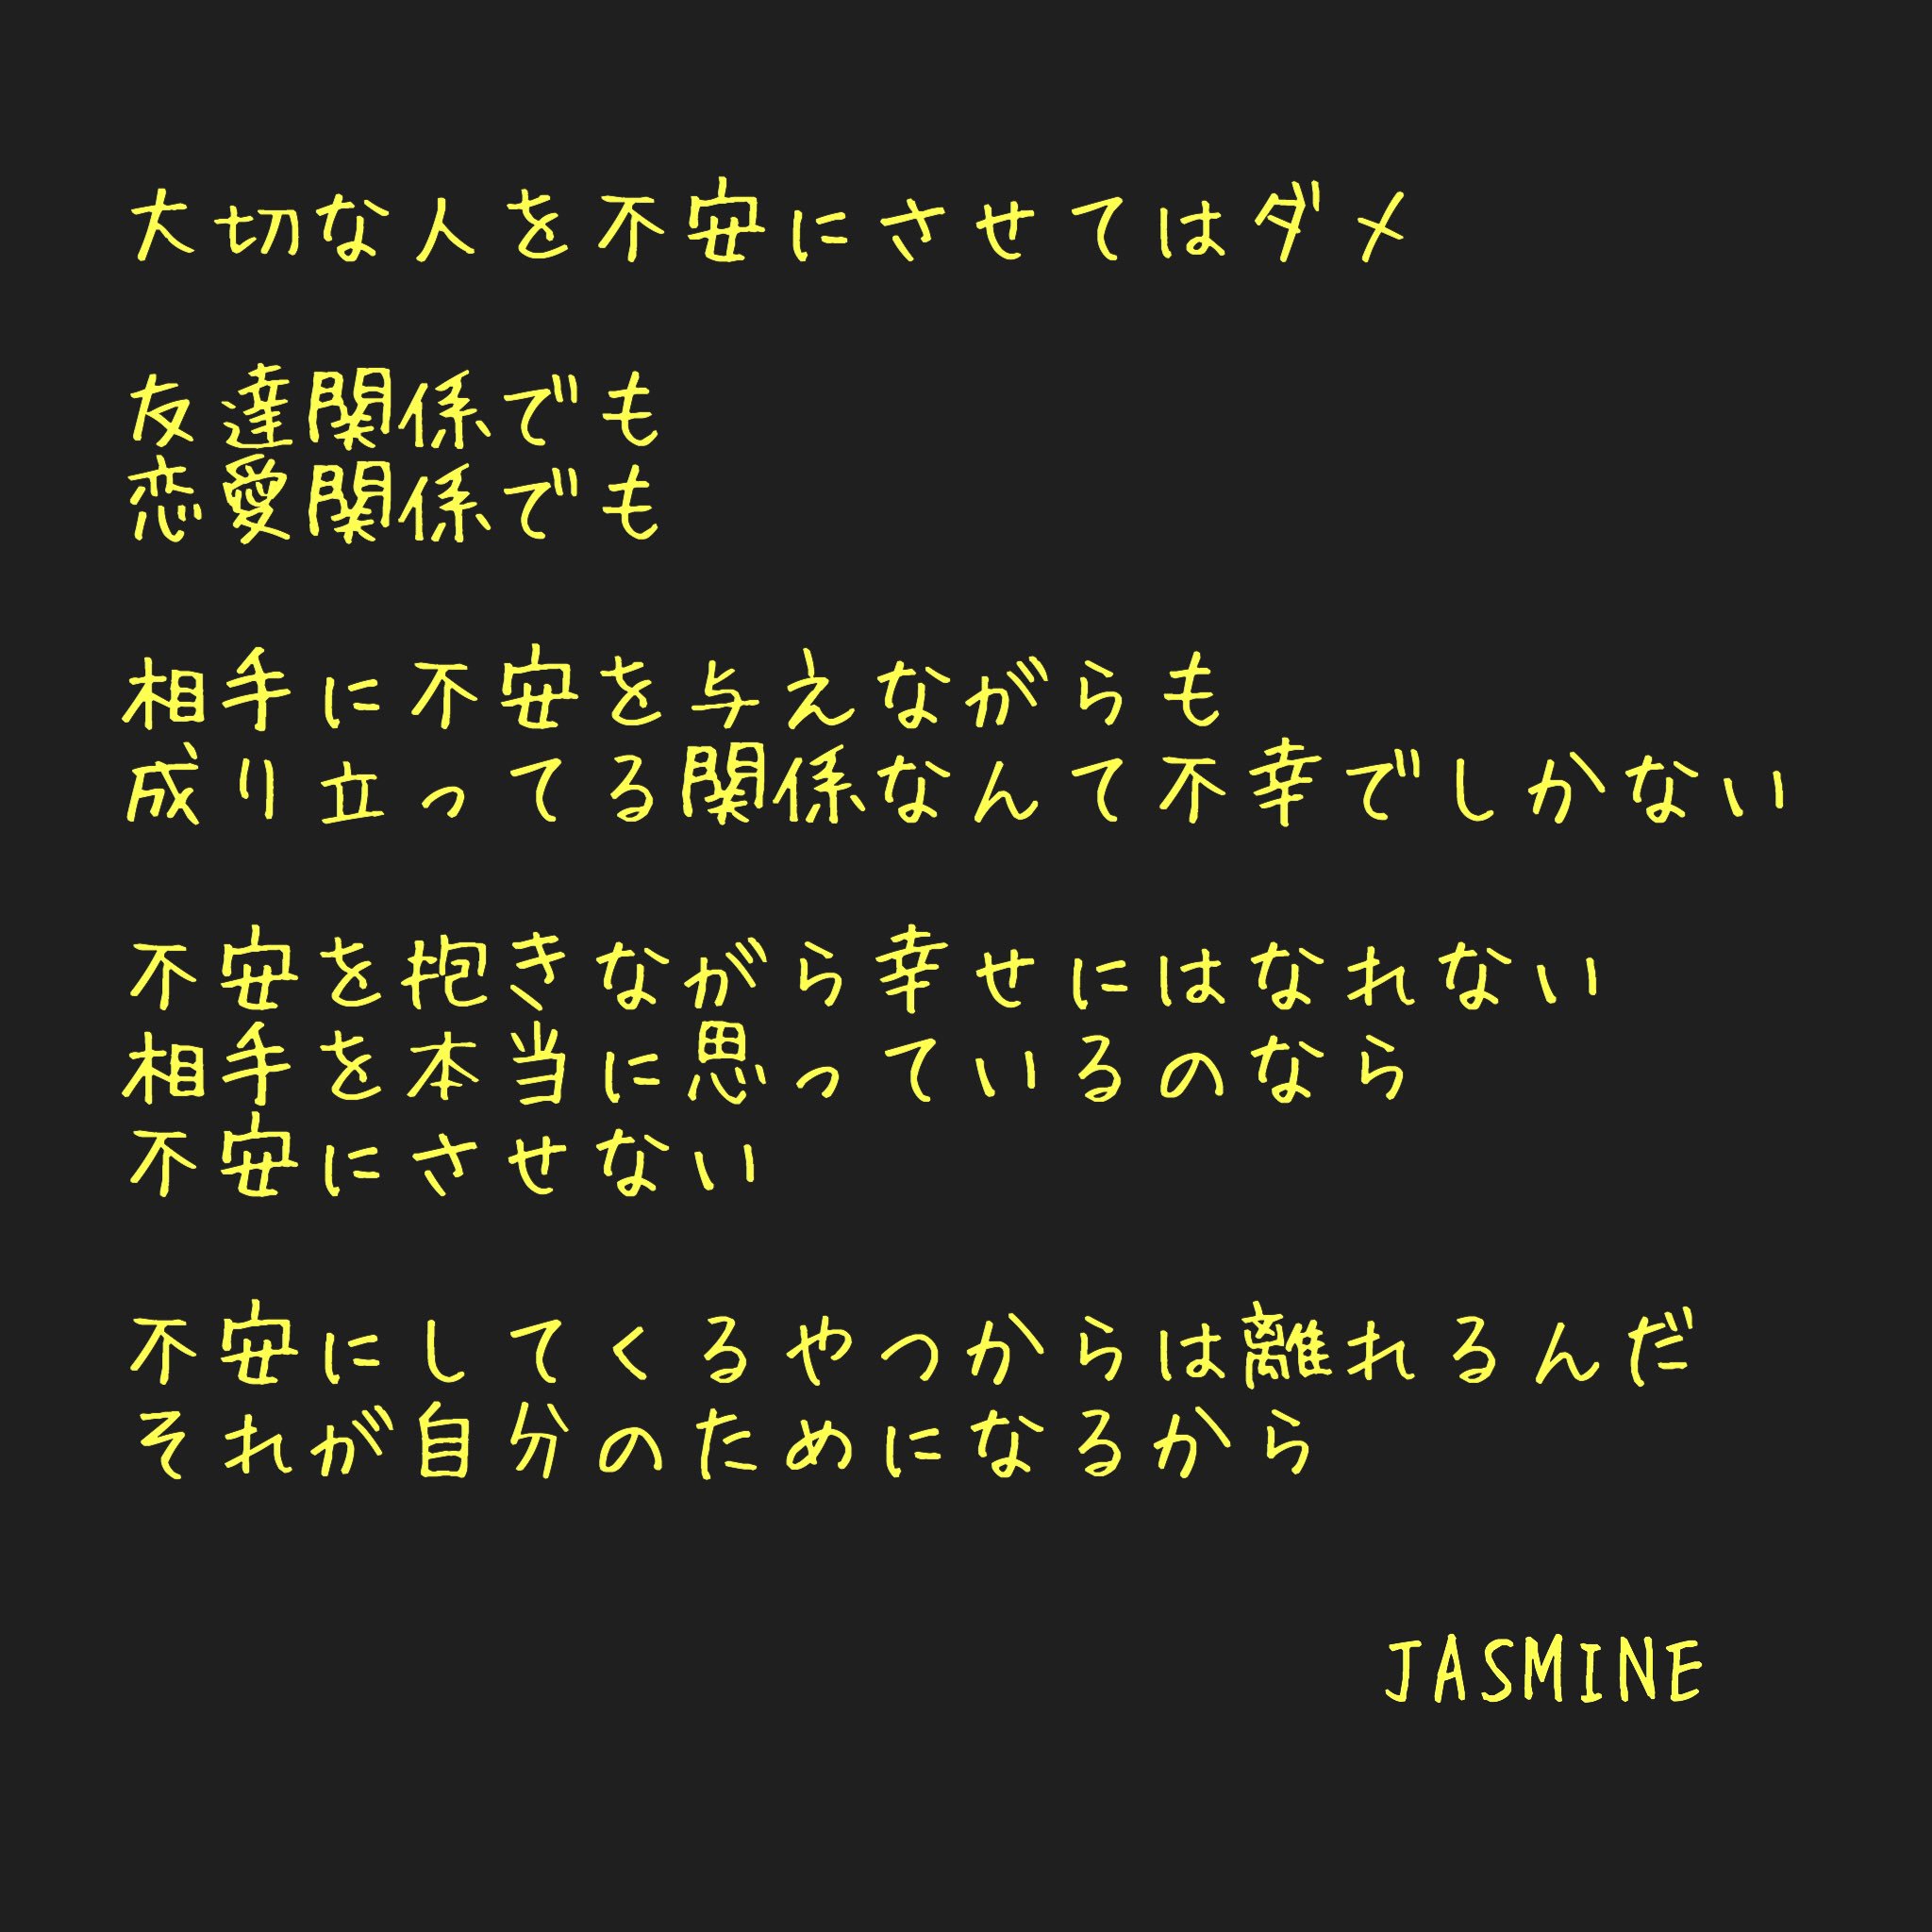 大切な人を不安にさせてはダメ
友達関係でも
恋愛関係でも
相手に不安を与えながらも
成り立ってる関係なんて不幸でしかない
不安を抱きながら幸せにはなれない
相手を本当に思っているのなら
不安にさせない
不安にしてくるやつからは離れるんだ
それが自分のためになるから
JASMINE